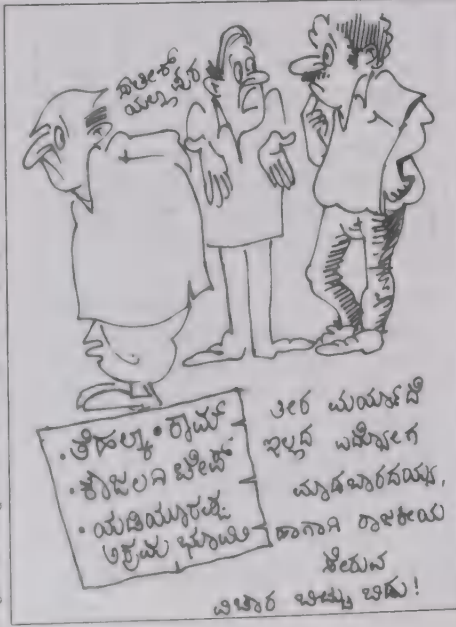 ಸತೀಶ್
ಯಲ್ಲಾಪುರ
• ತೆಹಲ್ಕಾ • ರ‍್ಯಾಮ್
• ಕಾಜಲಗಿ ಟೇಪ್
• ಯಡಿಯೂರಪ್ಪ
ಅಕ್ರಮ ಭೂಮಿ
ತೀರ ಮರ್ಯಾದೆ
ಇಲ್ಲದ ಉದ್ಯೋಗ
ಮಾಡಬಾರದಯ್ಯ,
ಹಾಗಾಗಿ ರಾಜಕೀಯ
ಸೇರುವ
ವಿಚಾರ ಬಿಟ್ಟು ಬಿಡು!